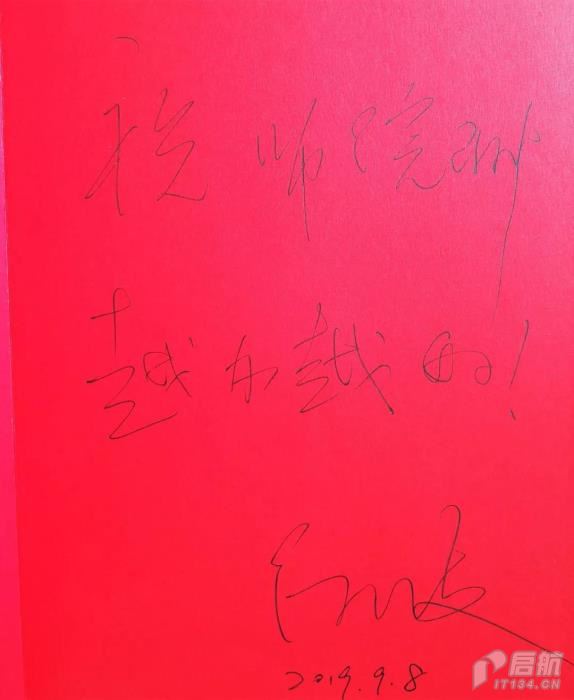 祝师院附
越办越好!
2019.9.8
启航
IT134.CN